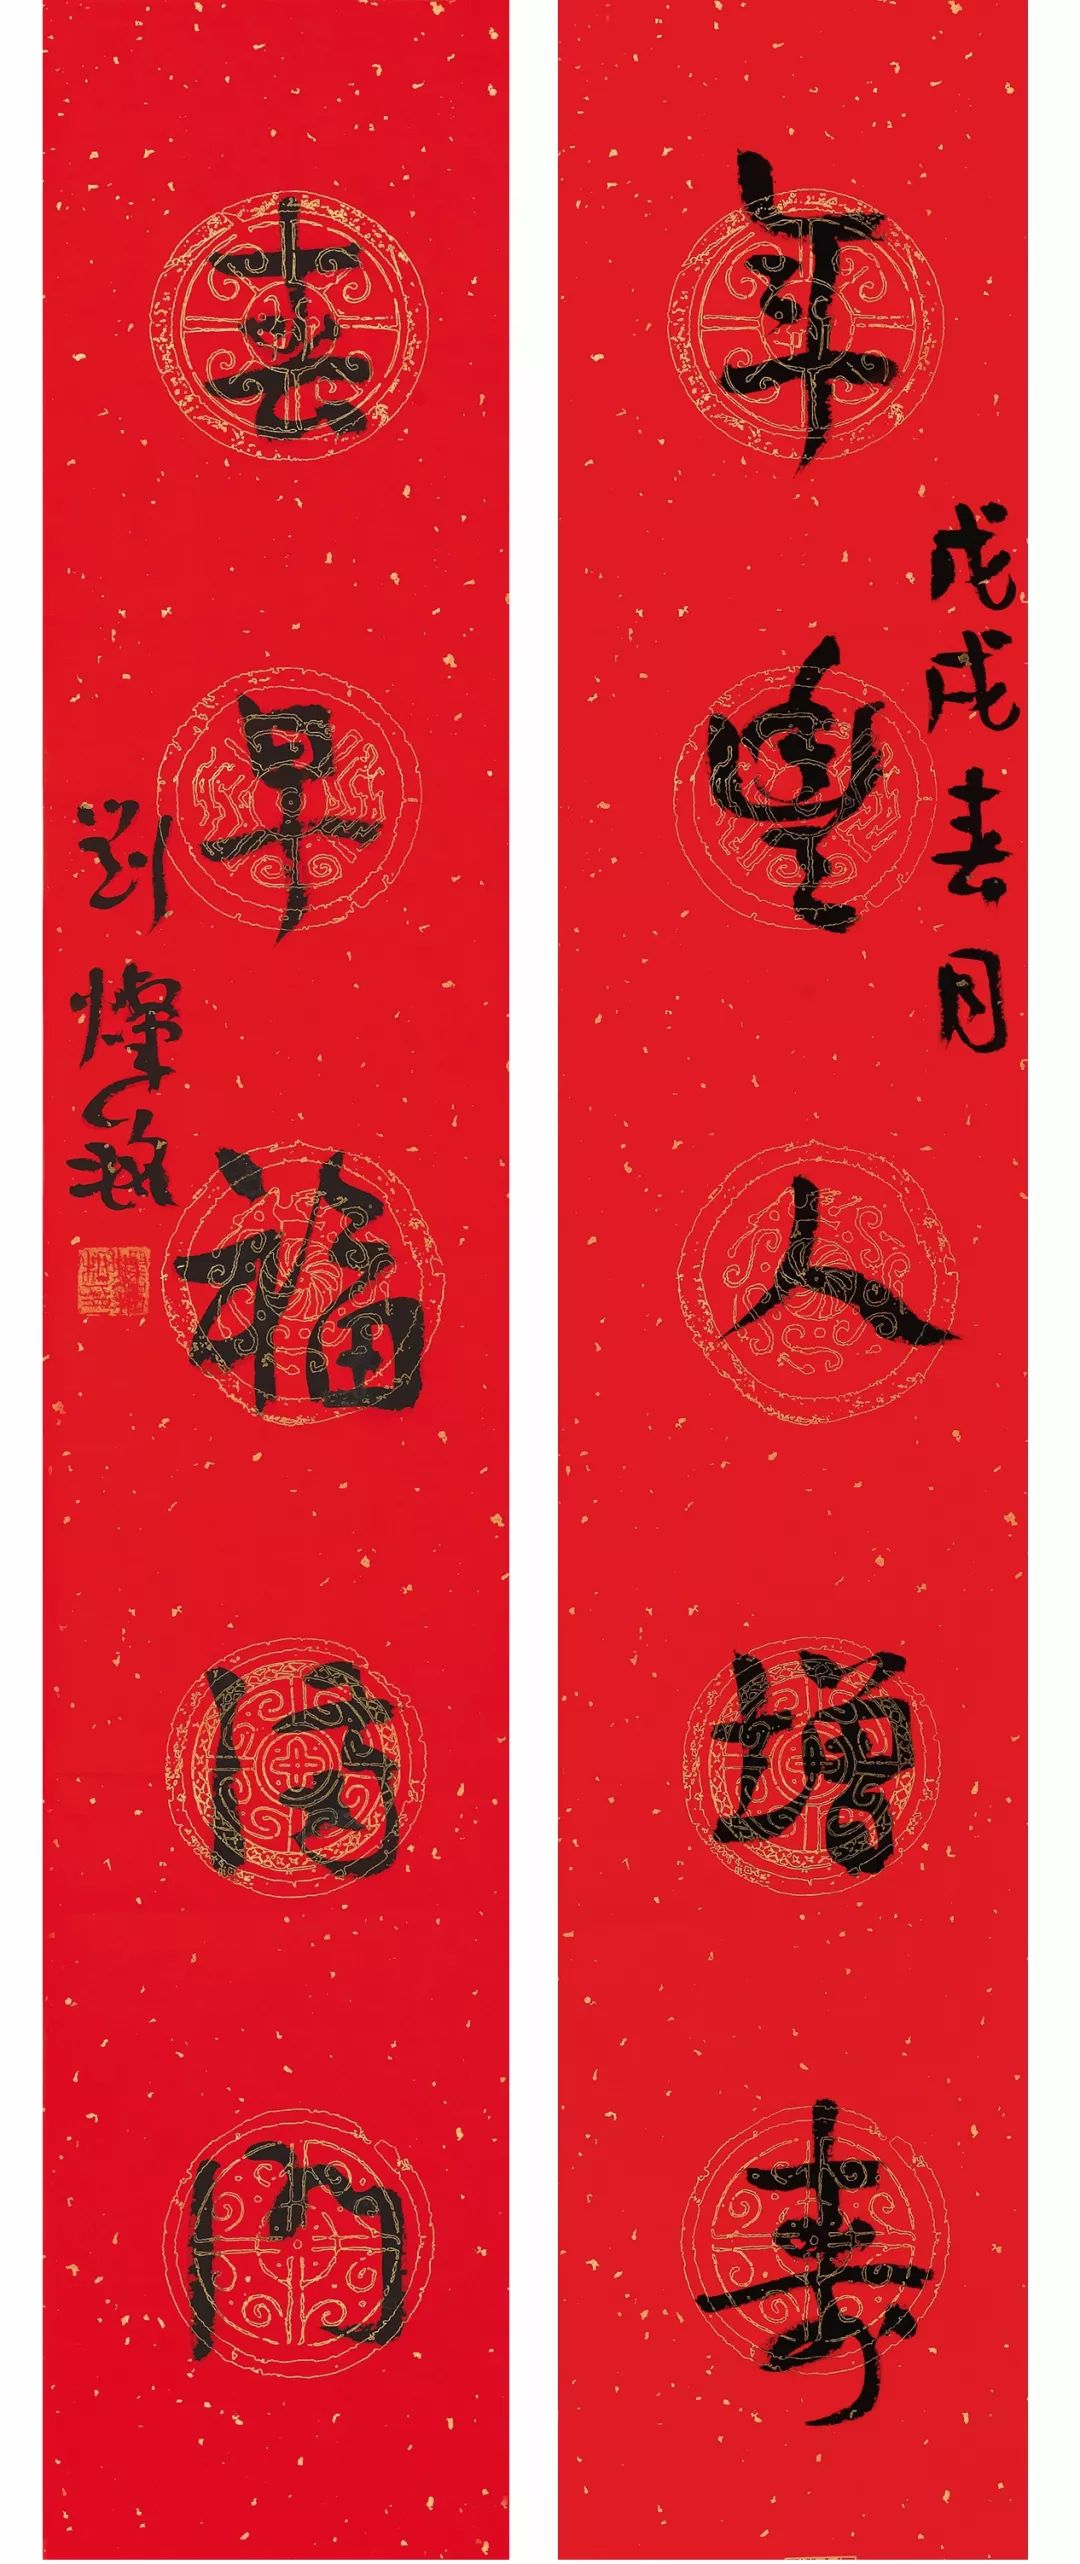 年豐人增寿
戊戌春月
春早福满门
刘灿铭